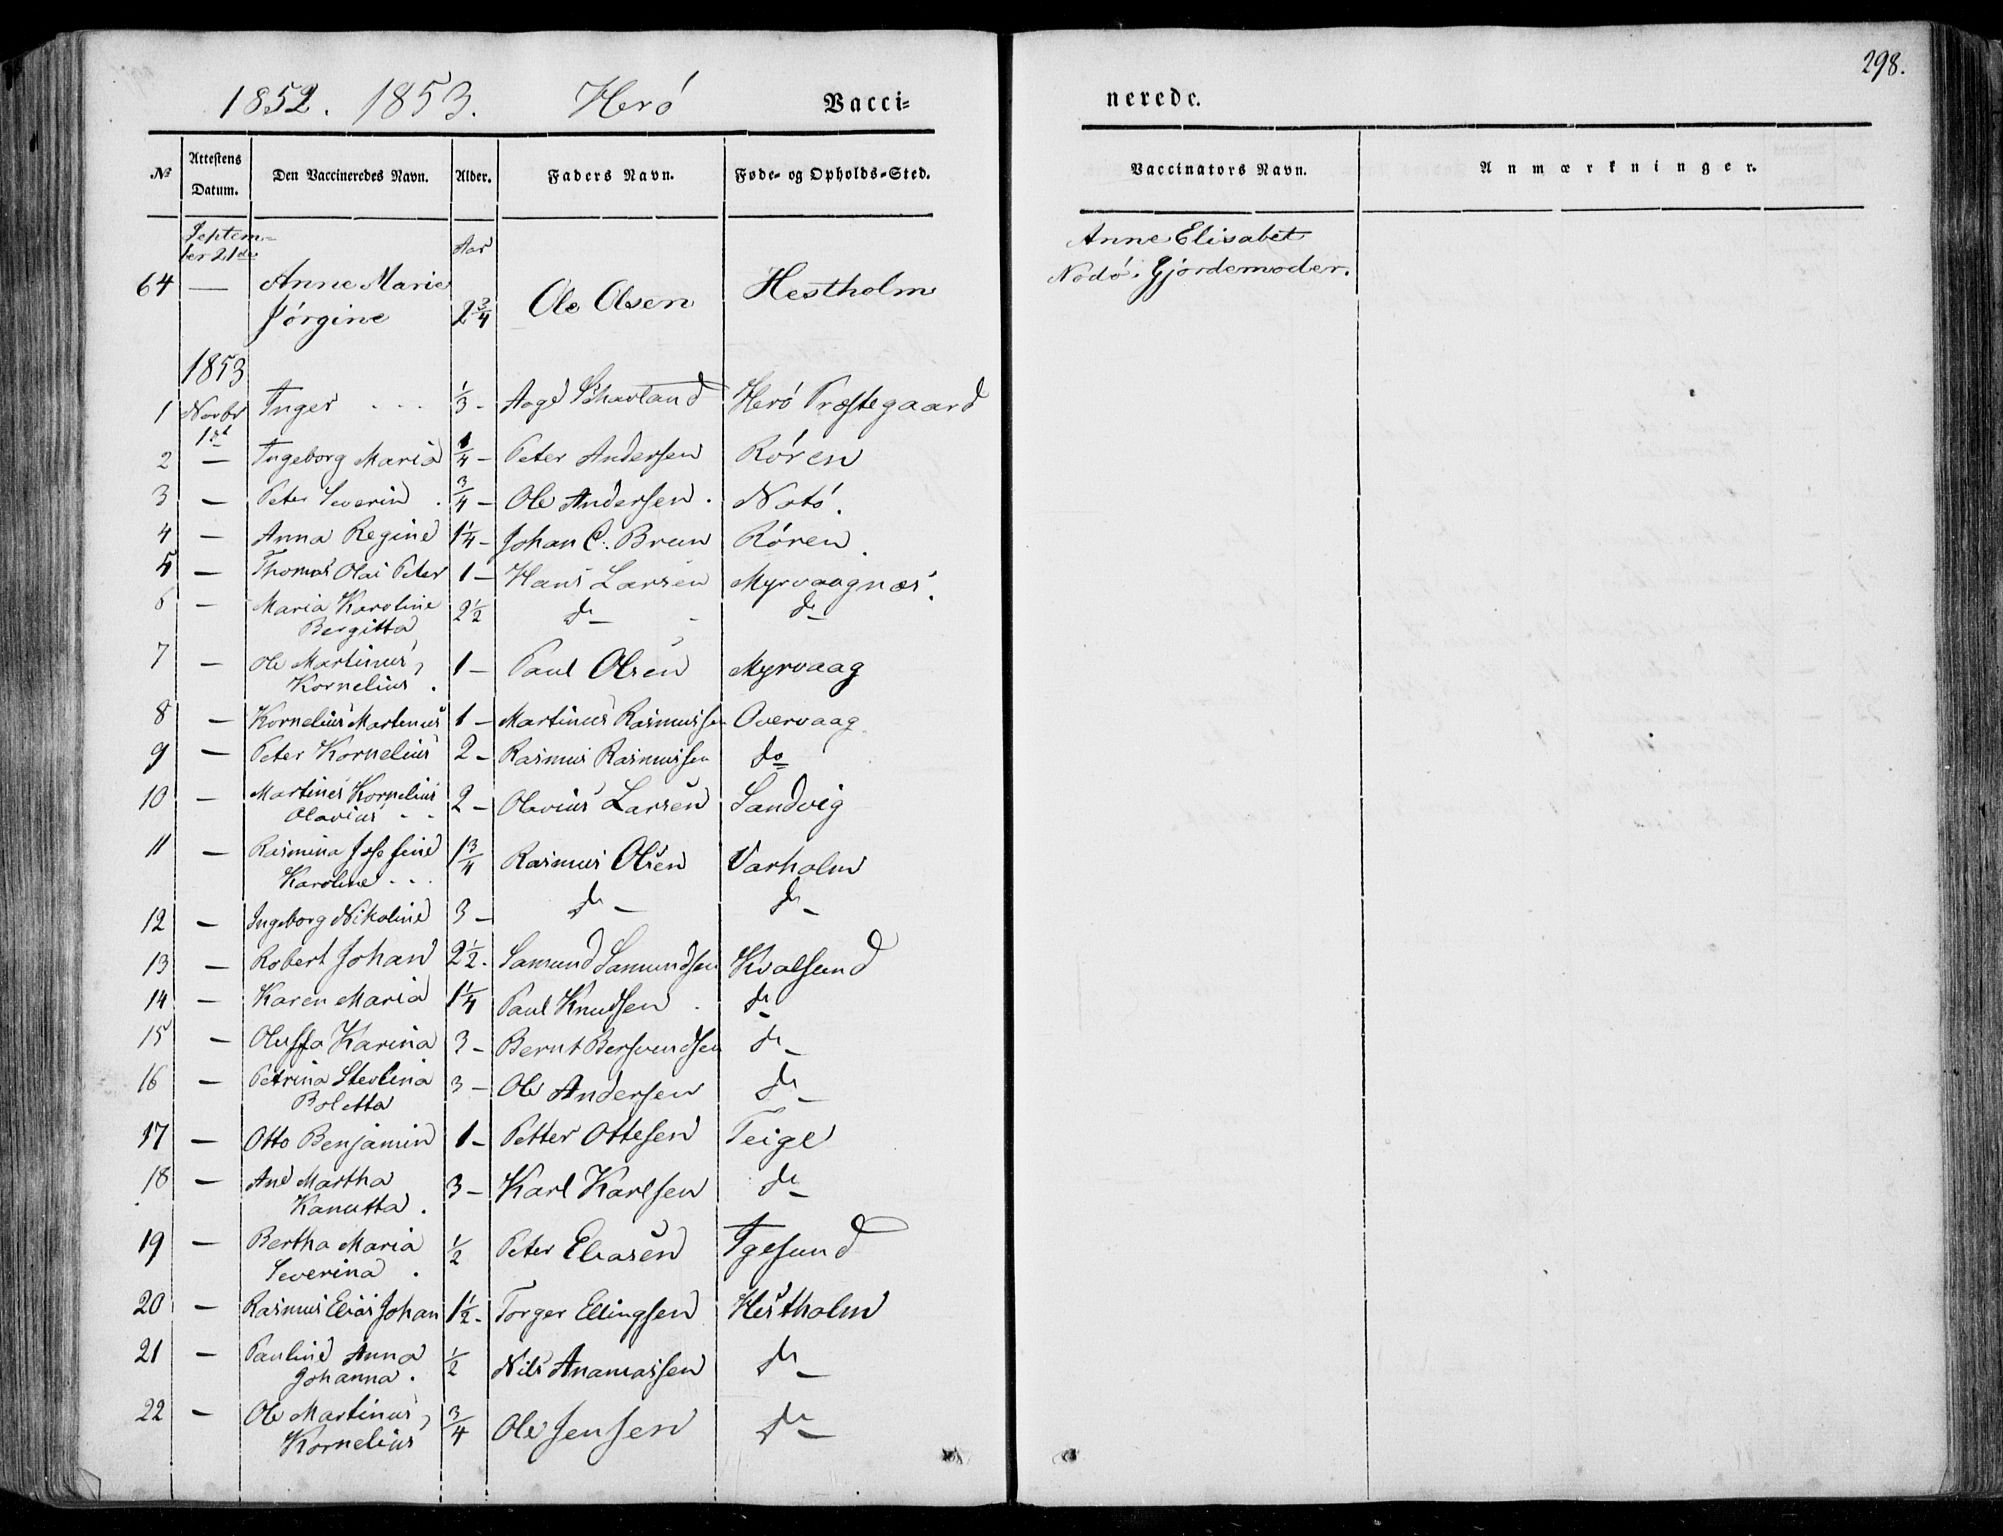 298.
1852. 1853. Herö Vacci=
nerede.
№ Attestens Datum. Den Vaccineredes Navn. Alder. Faders Navn. Føde- og Opholds-Sted. Vaccinators Navn. Anmærkninger.
Septem- Aar Anne Elisabet
ber 21de Nodö. Gjordemoder.
64 — Anne Marie 2 3/4 Ole Olsen Hestholm
Jörgine
1853
1 Novbr Inger . . . 1/3 - Aage Schavland Herö Præstegaard
1st
2 — Ingeborg Maria 1/4 - Peter Andersen Rören
3 — Peter Severin . 3/4 - Ole Andersen . Notö.
4 — Anna Regine 1 1/4 - Johan C. Brun Rören.
5 — Thomas Olai Peter 1 - Hans Larsen Myrvaagnæs.
6 — Maria Karoline 2 1/2 do - do
Bergitta
7 — Ole Martinus, 1 - Paul Olsen Myrvaag
Kornelius .
8 — Kornelius Martenus 1 - Martinus Rasmussen Overvaag
9 — Peter Kornelius 2 - Rasmus Rasmussen do
10 — Martines Kornelius 2 - Olavius Larsen Sandvig
Olavius - -
11 — Rasmina Josefine 1 3/4 Rasmus Olsen Varholm
Karoline - - -
12 — Ingeborg Nikoline 3 - do - do -
13 — Robert Johan 2 1/2. Samund Samundsen Kvalsund
14 — Karen Maria 1 1/4 Paul Knudsen . do
15 — Oluffa Karina 3 - Bernt Bersvendsen do -
16 — Petrina Stevlina 3 - Ole Andersen do -
Boletta
17 — Otto Benjamin 1 - Petter Ottesen Teige
18 — Ane Martha 3 - Karl Karlsen do -
Kanutta .
19 — Bertha Maria 1/2 Peter Eliasen Igesund
Severina .
20 — Rasmus Elias Johan 1 1/2 - Torger Ellingsen Hestholm
21 — Pauline Anna 1/2 Nils Ananiassen do -
Johanna .
22 — Ole Martinus, 3/4 Ole Jensen do -
Kornelius